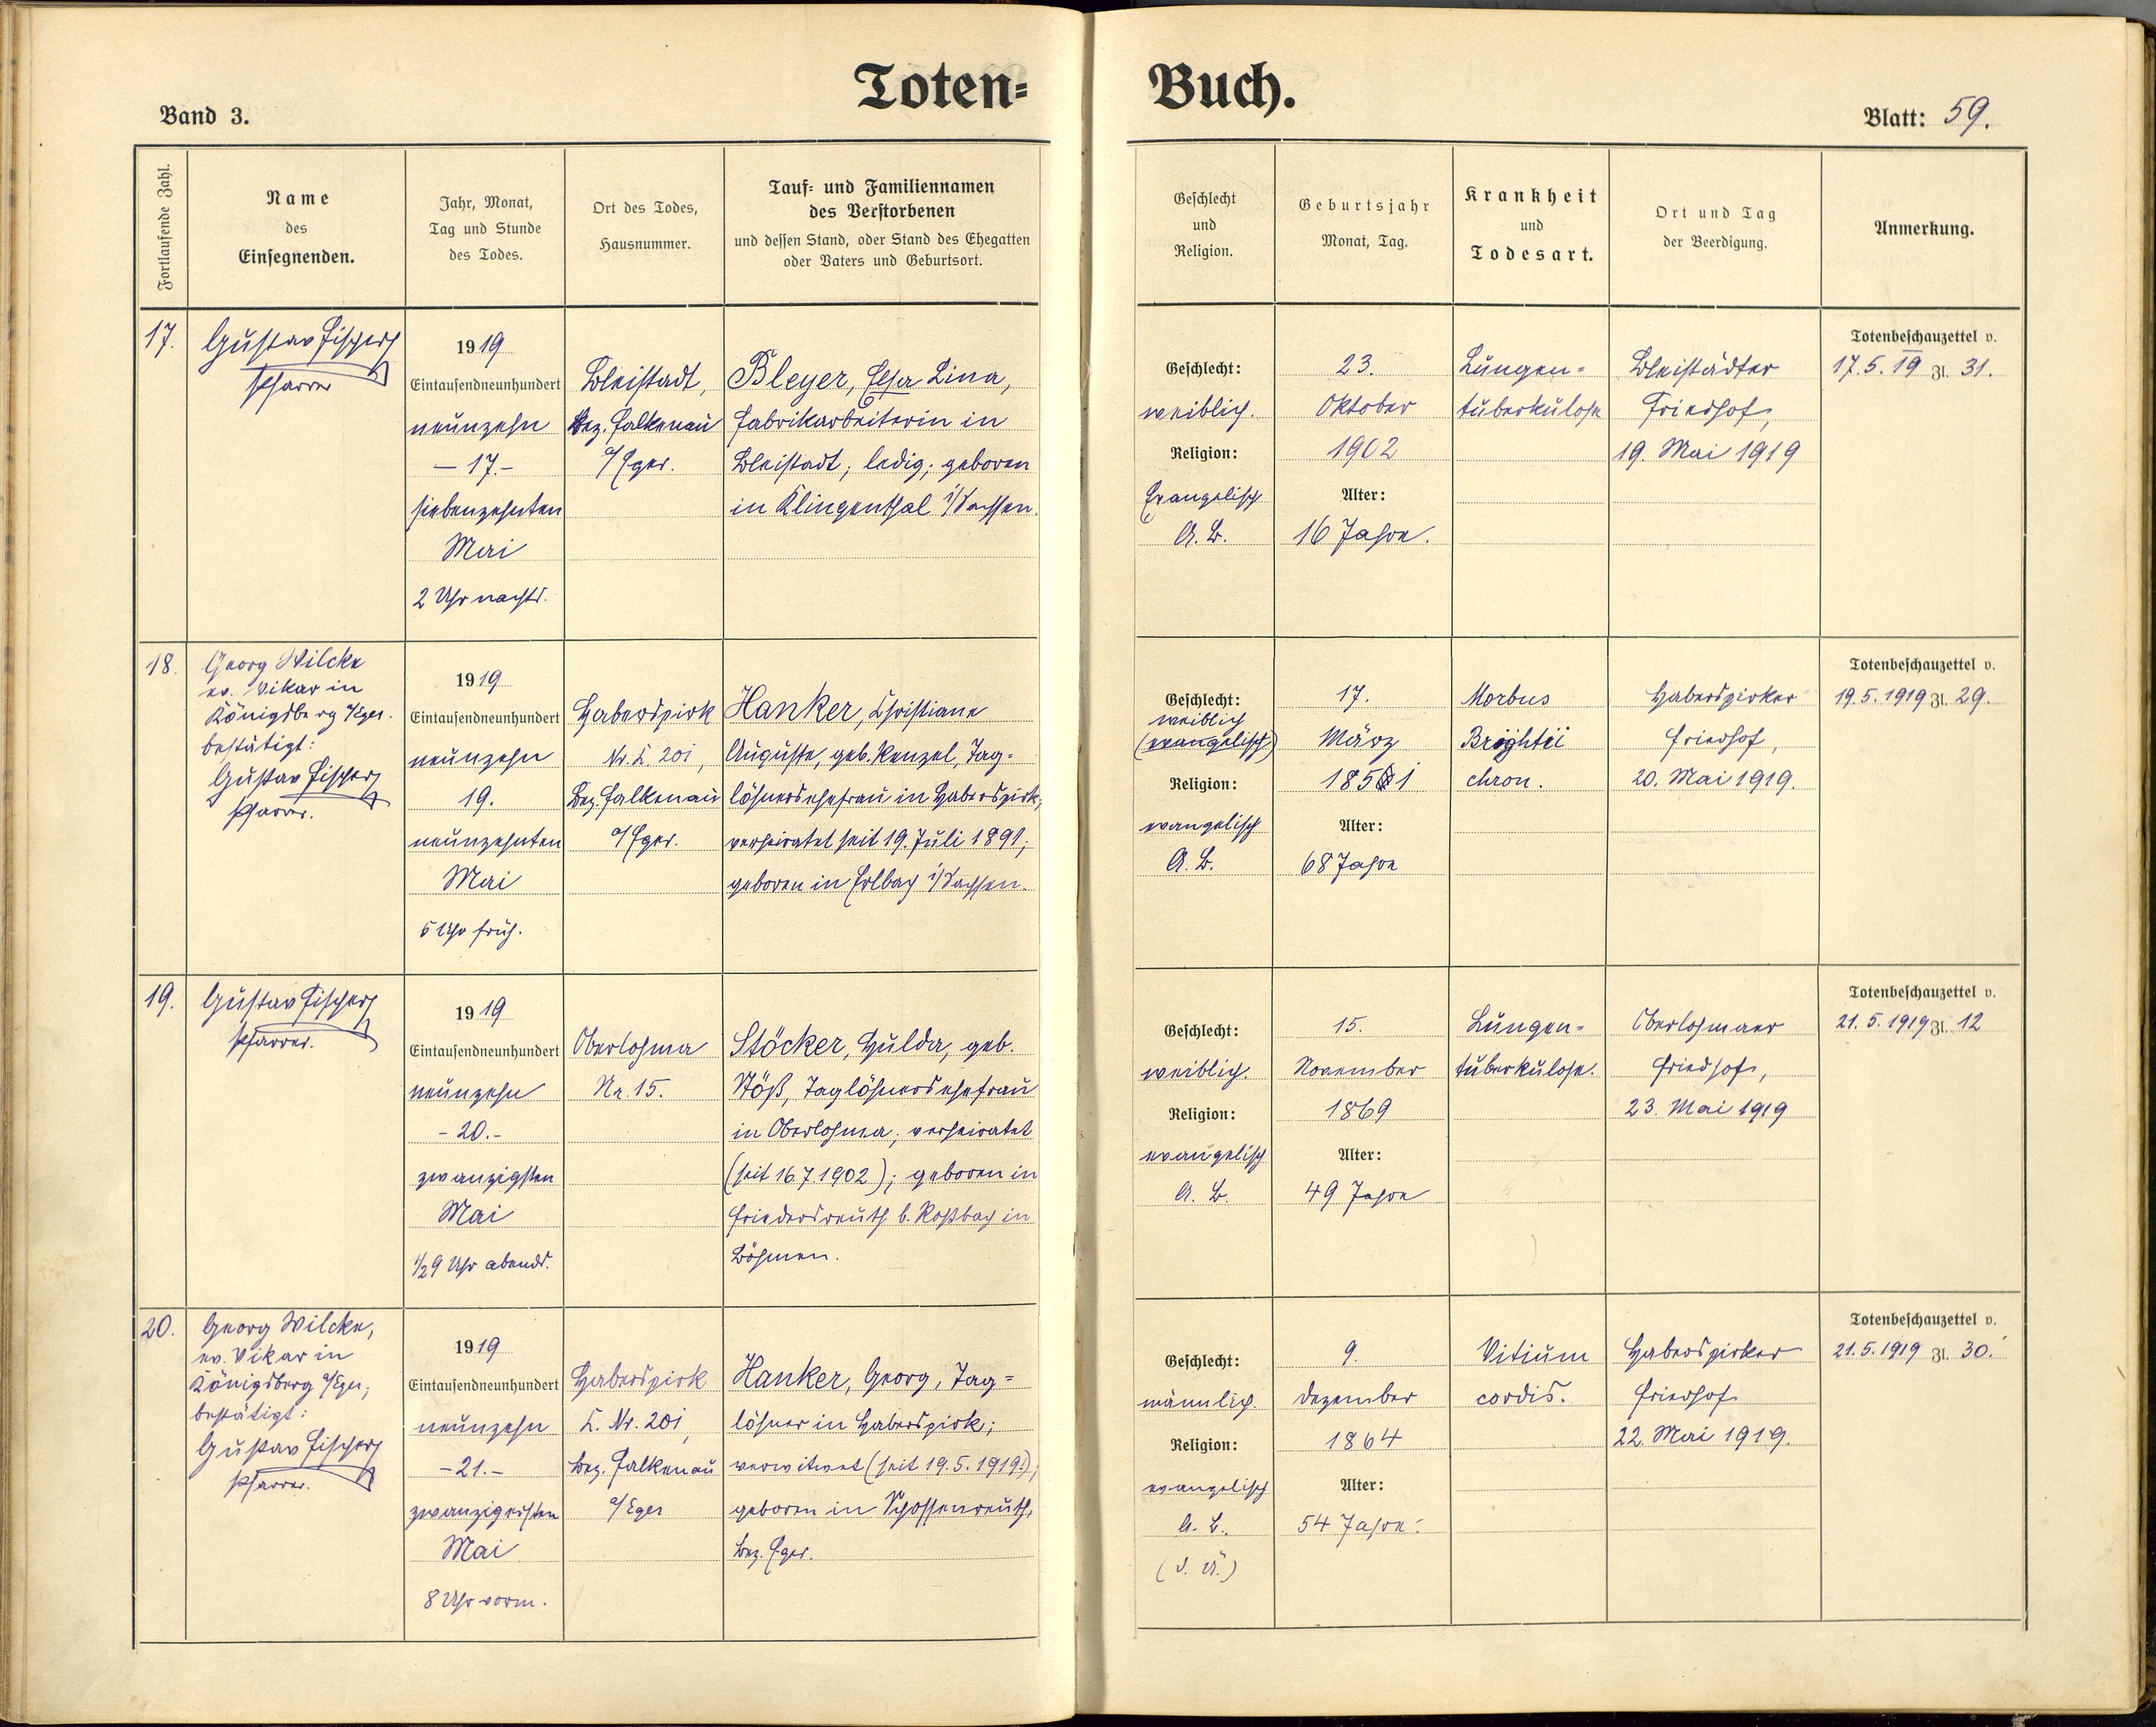 Toten=
Buch.
Band 3.
Blatt: 59.
Fortlaufende Zahl.
Name
des
Einsegnenden.
Jahr, Monat,
Tag und Stunde
des Todes.
Ort des Todes,
Hausnummer.
Tauf= und Familiennamen
des Verstorbenen
und dessen Stand, oder Stand des Ehegatten
oder Vaters und Geburtsort.
Geschlecht
und
Religion.
Geburtsjahr
Monat, Tag.
Krankheit
und
Todesart.
Ort und Tag
der Beerdigung.
Anmerkung.
17.
Gustav Fischer
Pfarrer
1919
Eintausendneunhundert
neunzehn
– 17. –
siebenzehnten
Mai
2 Uhr nachts.
Bleistadt,
Bez. Falkenau
a/Eger.
Bleyer, Elsa Lina,
Fabrikarbeiterin in
Bleistadt; ledig; geboren
in Klingenthal i/Sachsen.
Geschlecht:
weiblich.
Religion:
Evangelisch
A. B.
23.
Oktober
1902
Alter:
16 Jahre.
Lungen=
tuberkulose
Bleistädter
Friedhof,
19. Mai 1919
Totenbeschauzettel v.
17. 5. 19 Zl. 31.
18.
Georg Wilcke
ev. Vikar in
Königsberg a/Eger.
bestätigt:
Gustav Fischer
Pfarrer.
1919
Eintausendneunhundert
neunzehn
19.
neunzehnten
Mai
5 Uhr früh.
Haberspirk
Nr. C. 201,
Bez. Falkenau
a/Eger.
Hanker, Christiane
Auguste, geb. Renzel, Tag=
löhnersehefrau in Haberspirk;
verheiratet seit 19. Juli 1891;
geboren in Erlbach i/Sachsen.
Geschlecht:
weiblich
(evangelisch)
Religion:
evangelisch
A. B.
17.
März
1851
Alter:
68 Jahre
Morbus
Brightii
chron.
Haberspirker
Friedhof,
20. Mai 1919.
Totenbeschauzettel v.
19. 5. 1919 Zl. 29.
19.
Gustav Fischer
Pfarrer.
1919
Eintausendneunhundert
neunzehn
– 20. –
zwanzigsten
Mai
1/2 9 Uhr abends.
Oberlohma
Nr. 15.
Stöcker, Hulda, geb.
Stöß, Taglöhnersehefrau
in Oberlohma; verheiratet
(seit 16. 7. 1902); geboren in
Friedersreuth b. Roßbach in
Böhmen.
Geschlecht:
weiblich.
Religion:
evangelisch
A. B.
15.
November
1869
Alter:
49 Jahre
Lungen=
tuberkulose.
Oberlohmaer
Friedhof,
23. Mai 1919
Totenbeschauzettel v.
21. 5. 1919 Zl. 12
20.
Georg Wilcke,
ev. Vikar in
Königsberg a/Eger,
bestätigt:
Gustav Fischer
Pfarrer.
1919
Eintausendneunhundert
neunzehn
– 21. –
zwanzigersten
Mai
8 Uhr vorm.
Haberspirk
C. Nr. 201,
Bez. Falkenau
a/Eger
Hanker, Georg, Tag=
löhner in Haberspirk;
verwitwet (seit 19. 5. 1919);
geboren in Schossenreuth,
Bez. Eger.
Geschlecht:
männlich.
Religion:
evangelisch
A. B.
9.
Dezember
1864
Alter:
54 Jahre.
Vitium
cordis.
Haberspirker
Friedhof
22. Mai 1919.
Totenbeschauzettel v.
21. 5. 1919 Zl. 30.